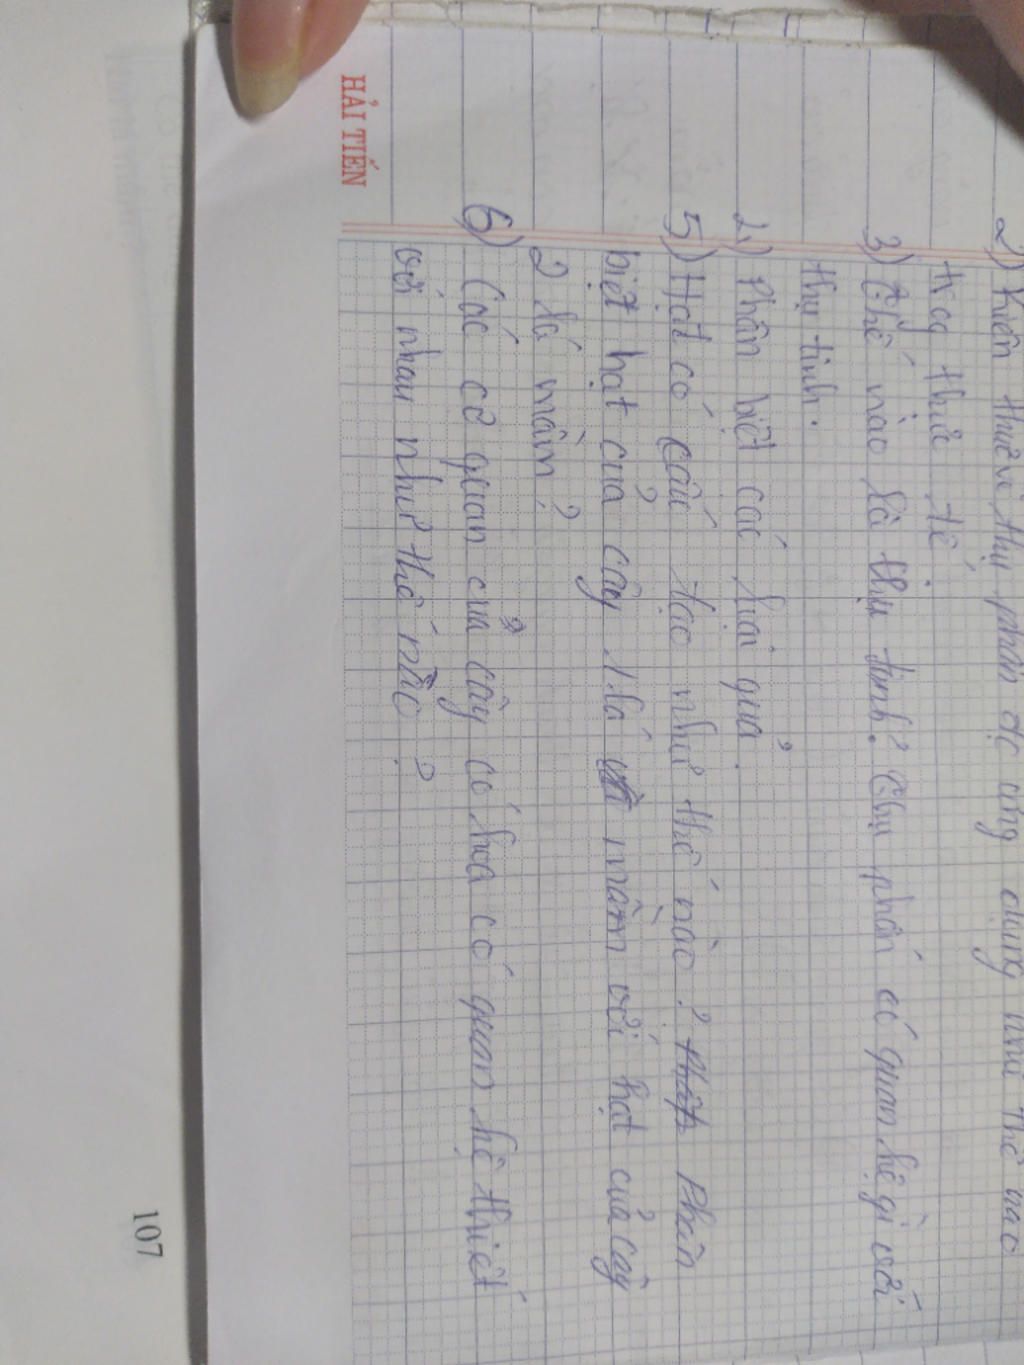 2) Kiến thức về thụ phấn đc ứng dụng như thế nào
trog thực tế
3) Thế nào là thụ tinh? Thụ phấn có quan hệ gì với
thụ tinh.
4) Phân biệt các loại quả.
5) Hạt có cấu tạo như thế nào? Phân
biệt hạt của cây 1 lá mầm với hạt của cây
2 lá mầm?
6) Các cơ quan của cây có hoa có quan hệ thiết
với nhau như thế nào?
HẢI TIẾN
107